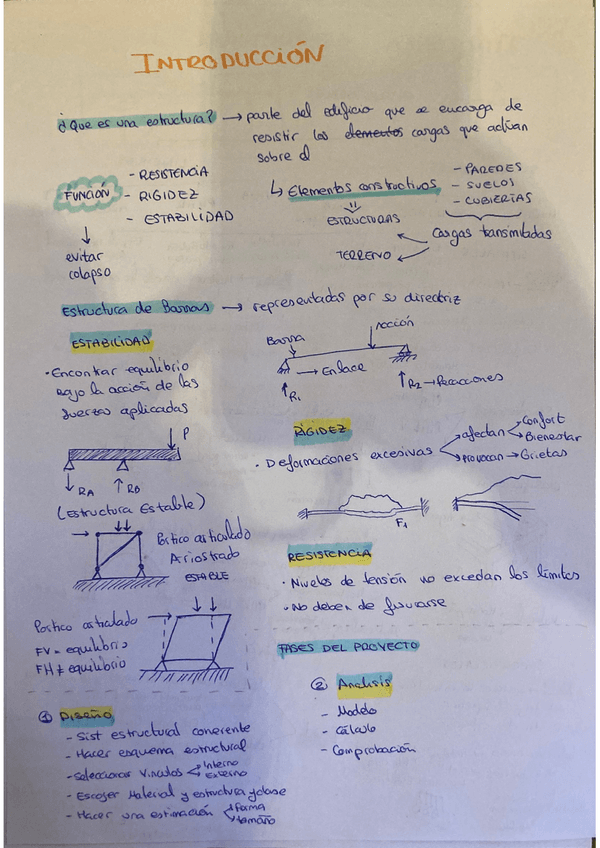 INTRODUCCIÓN
¿Que es una estructura? → parte del edificio que se encarga de
resistir las elementos cargas que actúan
sobre él
↳ Elementos constructivos
- PAREDES
- SUELOS
- CUBIERTAS
ESTRUCTURAS
TERRENO
cargas transmitadas
FUNCIÓN
- RESISTENCIA
- RIGIDEZ
- ESTABILIDAD
evitar
colapso
Estructura de Barras → representadas por su directriz
ESTABILIDAD
• Encontrar equilibrio
bajo la acción de las
fuerzas aplicadas
P
RA
RB
(Estructura Estable)
Pórtico articulado
Arriostrado
ESTABLE
Pórtico articulado
FV = equilibrio
FH ≠ equilibrio
Barra
Acción
→ Enlace
R1
R2 → Reacciones
RIGIDEZ
• Deformaciones excesivas
afectan
Confort
Bienestar
provocan → Grietas
F1
RESISTENCIA
• Niveles de tensión no excedan los límites
• No deben de fisurarse
FASES DEL PROYECTO
① Diseño
- Sist estructural coherente
- Hacer esquema estructural
- Seleccionar vinculos
Interno
Externo
- Escoger Material y estructura y clase
- Hacer una estimación
forma
tamaño
② Analisis
- Modelo
- Cálculo
- Comprobación